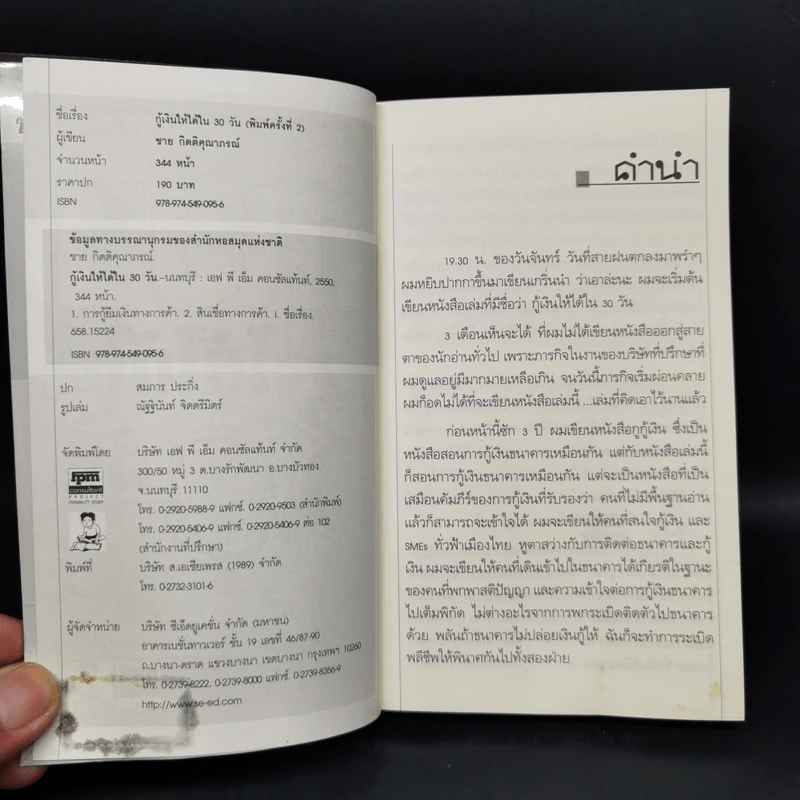 ชื่อเรื่อง กู้เงินให้ได้ใน 30 วัน (พิมพ์ครั้งที่ 2)
ผู้เขียน ชาย กิตติคุณาภรณ์
จำนวนหน้า 344 หน้า
ราคาปก 190 บาท
ISBN 978-974-549-095-6
ข้อมูลทางบรรณานุกรมของสำนักหอสมุดแห่งชาติ
ชาย กิตติคุณาภรณ์.
กู้เงินให้ได้ใน 30 วัน.--นนทบุรี : เอฟ พี เอ็ม คอนซัลแท้นท์, 2550.
344 หน้า.
1. การกู้ยืมเงินทางการค้า. 2. สินเชื่อทางการค้า. I. ชื่อเรื่อง.
658.15224
ISBN 978-974-549-095-6
ปก สมภาร ประกิ่ง
รูปเล่ม ณัฐฐินันท์ จิตตรีมิตร์
จัดพิมพ์โดย บริษัท เอฟ พี เอ็ม คอนซัลแท้นท์ จำกัด
300/50 หมู่ 3 ต.บางรักพัฒนา อ.บางบัวทอง
จ.นนทบุรี 11110
โทร. 0-2920-5988-9 แฟกซ์. 0-2920-9503 (สำนักพิมพ์)
โทร. 0-2920-5406-9 แฟกซ์. 0-2920-5406-9 ต่อ 102
(สำนักงานที่ปรึกษา)
fpm
consultant
PROJECT
FEASIBILITY STUDY
พิมพ์ที่ บริษัท ส.เอเซียเพรส (1989) จำกัด
โทร. 0-2732-3101-6
ผู้จัดจำหน่าย บริษัท ซีเอ็ดยูเคชั่น จำกัด (มหาชน)
อาคารเนชั่นทาวเวอร์ ชั้น 19 เลขที่ 46/87-90
ถ.บางนา-ตราด แขวงบางนา เขตบางนา กรุงเทพฯ 10260
โทร. 0-2739-8222, 0-2739-8000 แฟกซ์. 0-2739-8356-9
http://www.se-ed.com
คำนำ
19.30 น. ของวันจันทร์ วันที่สายฝนตกลงมาพรำๆ
ผมหยิบปากกาขึ้นมาเขียนเกริ่นนำ ว่าเอาล่ะนะ ผมจะเริ่มต้น
เขียนหนังสือเล่มที่มีชื่อว่า กู้เงินให้ได้ใน 30 วัน
3 เดือนเห็นจะได้ ที่ผมไม่ได้เขียนหนังสือออกสู่สาย
ตาของนักอ่านทั่วไป เพราะภารกิจในงานของบริษัทที่ปรึกษาที่
ผมดูแลอยู่มีมากมายเหลือเกิน จนวันนี้ภารกิจเริ่มผ่อนคลาย
ผมก็อดไม่ได้ที่จะเขียนหนังสือเล่มนี้ ...เล่มที่คิดเอาไว้นานแล้ว
ก่อนหน้านี้ซัก 3 ปี ผมเขียนหนังสือกูกู้เงิน ซึ่งเป็น
หนังสือสอนการกู้เงินธนาคารเหมือนกัน แต่กับหนังสือเล่มนี้
ก็สอนการกู้เงินธนาคารเหมือนกัน แต่จะเป็นหนังสือที่เป็น
เสมือนคัมภีร์ของการกู้เงินที่รับรองว่า คนที่ไม่มีพื้นฐานอ่าน
แล้วก็สามารถจะเข้าใจได้ ผมจะเขียนให้คนที่สนใจกู้เงิน และ
SMEs ทั่วฟ้าเมืองไทย หูตาสว่างกับการติดต่อธนาคารและกู้
เงิน ผมจะเขียนให้คนที่เดินเข้าไปในธนาคารได้เกียรติในฐานะ
ของคนที่พกพาสติปัญญา และความเข้าใจต่อการกู้เงินธนาคาร
ไปเต็มพิกัด ไม่ต่างอะไรจากการพกระเบิดติดตัวไปธนาคาร
ด้วย พลันถ้าธนาคารไม่ปล่อยเงินกู้ให้ ฉันก็จะทำการระเบิด
พลีชีพให้พินาศกันไปทั้งสองฝ่าย